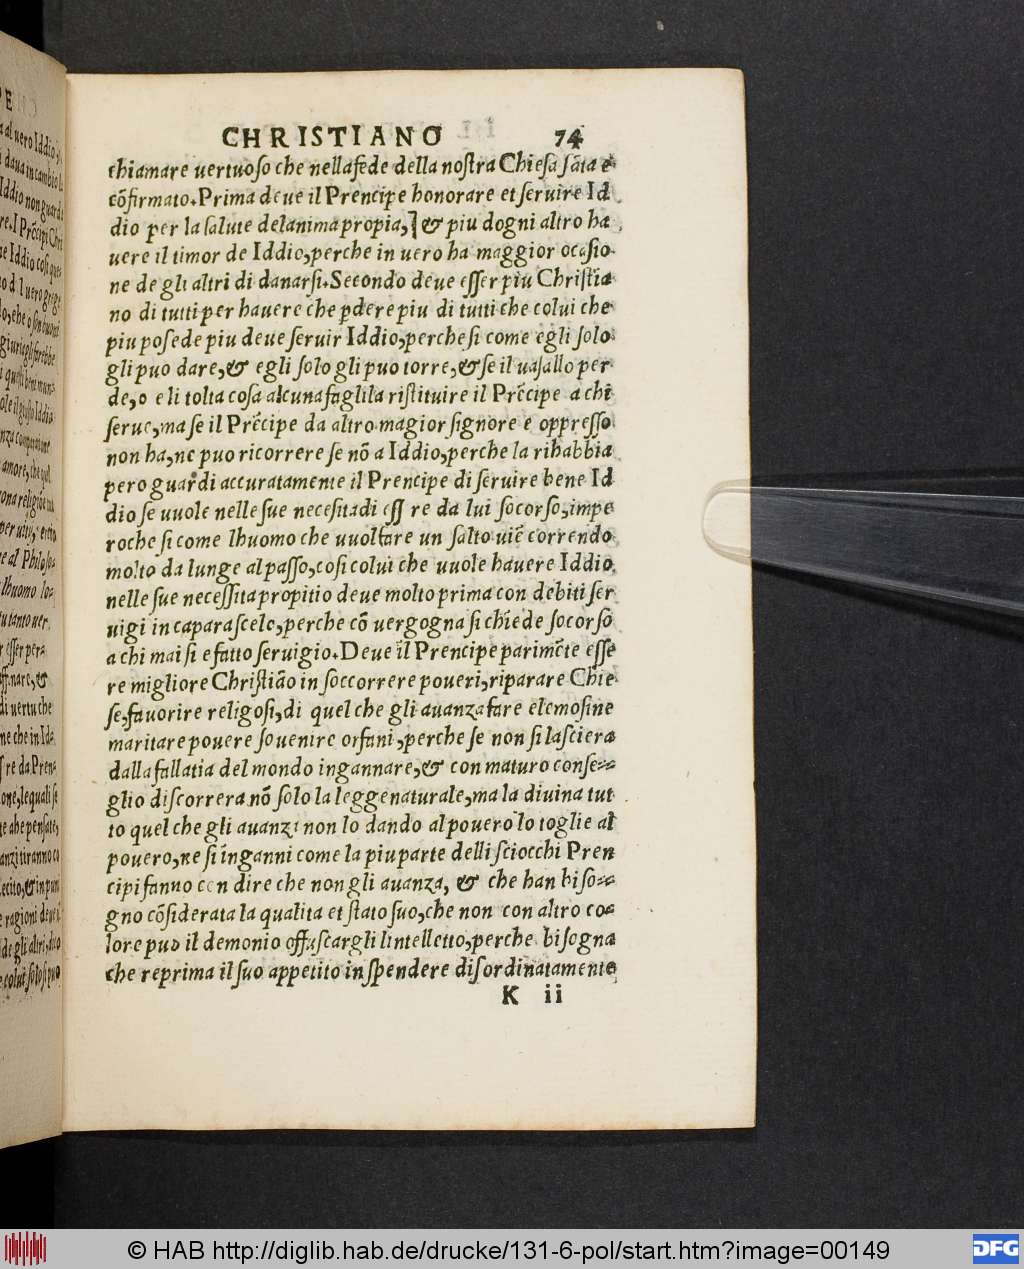 CHRISTIANO 74
chiamare uertuoso che nella fede della nostra Chiesa sāta è
cōfirmato. Prima deue il Prencipe honorare et seruire Id
dio per la salute delanima propia, & piu dogni altro ha
uere il timor de Iddio, perche in uero ha maggior ocasio
ne de gli altri di danarsi. Secondo deue esser piu Christia
no di tutti per hauere che pdere piu di tutti che colui che
piu posede piu deue seruir Iddio, perche si come egli solo
gli puo dare, & egli solo gli puo torre, & se il uasallo per
de, o e li tolta cosa alcuna fagli la ristituire il Prēcipe a chi
serue, ma se il Prēcipe da altro magior signore e oppresso
non ha, ne puo ricorrere se nō a Iddio, perche la rihabbia
pero guardi accuratamente il Prencipe di seruire bene Id
dio se uuole nelle sue necesitadi ess re da lui socorso, impe
roche si come lhuomo che uuol fare un salto uiē correndo
molto da lunge al passo, cosi colui che uuole hauere Iddio
nelle sue necessita propitio deue molto prima con debiti ser
uigi in caparascelo, perche cō uergogna si chiede socorso
a chi mai si e fatto seruigio. Deue il Prencipe parimēte esse
re migliore Christiāo in soccorrere poueri, riparare Chie
se, fauorire religosi, di quel che gli auanza fare elemosine
maritare pouere souenire orfani, perche se non si lasciera
dalla fallatia del mondo ingannare, & con maturo conse-
glio discorrera nō solo la legge naturale, ma la diuina tut
to quel che gli auanzi non lo dando al pouero lo toglie al
pouero, ne si inganni come la piu parte delli sciocchi Pren
cipi fanno con dire che non gli auanza, & che han biso-
gno cōsiderata la qualita et stato suo, che non con altro co-
lore puo il demonio offuscargli lintelletto, perche bisogna
che reprima il suo appetito in spendere disordinatamente
K ii
© HAB http://diglib.hab.de/drucke/131-6-pol/start.htm?image=00149
DFG